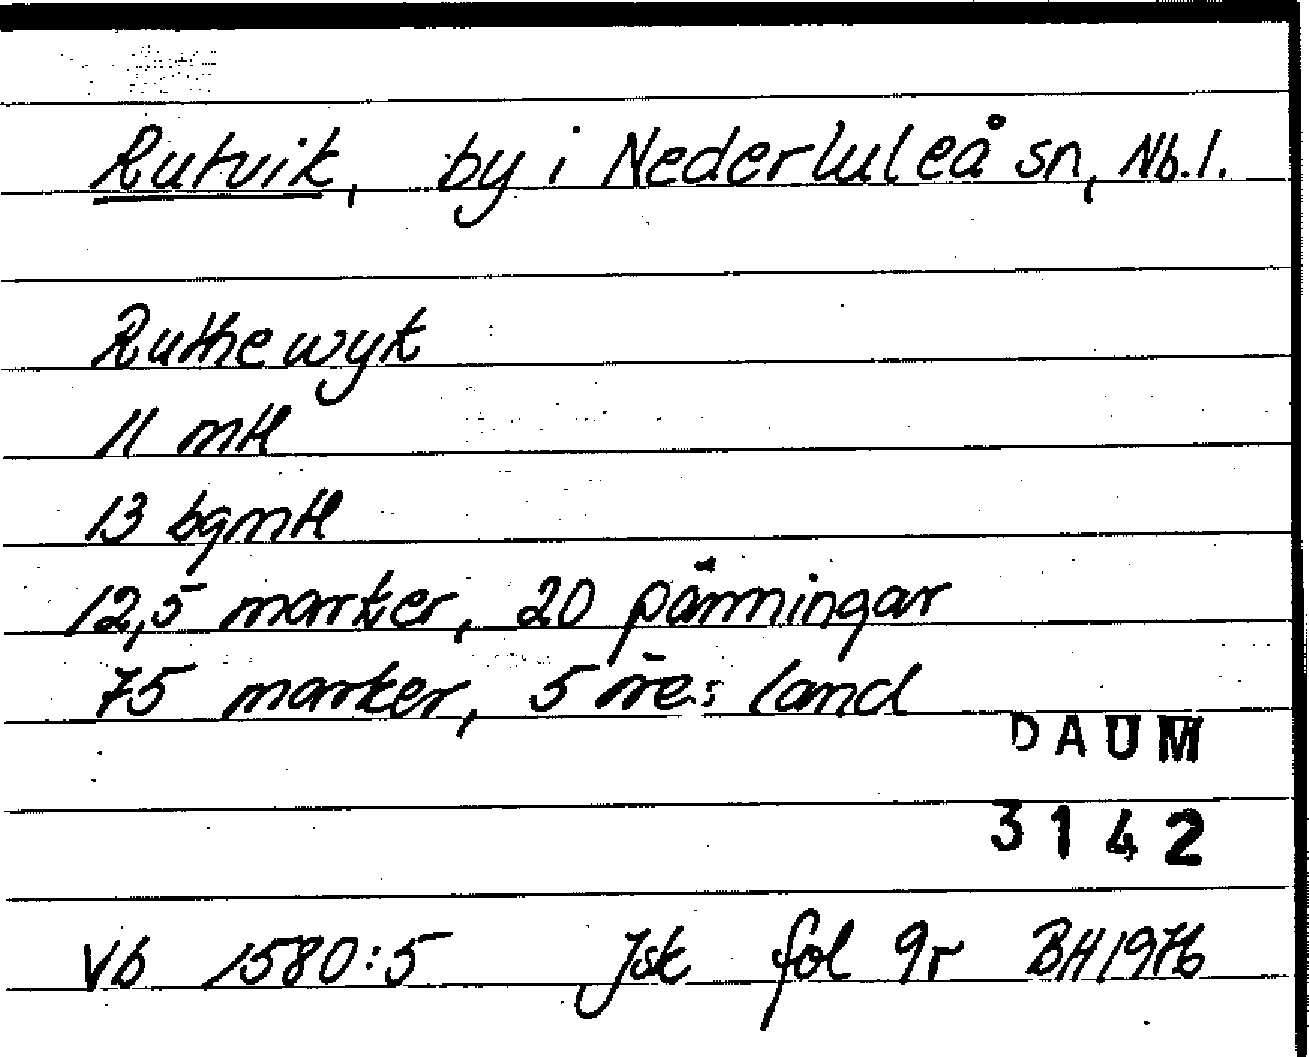 Rutvik, by i Nederluleå sn, Nb.l.
Ruthewyk
11 mtl
13 bgmtl
12,5 marker, 20 pänningar
75 marker, 5 öres land
DAUM
3142
Vb 1580:5 Jsk fol 9r BH 1976